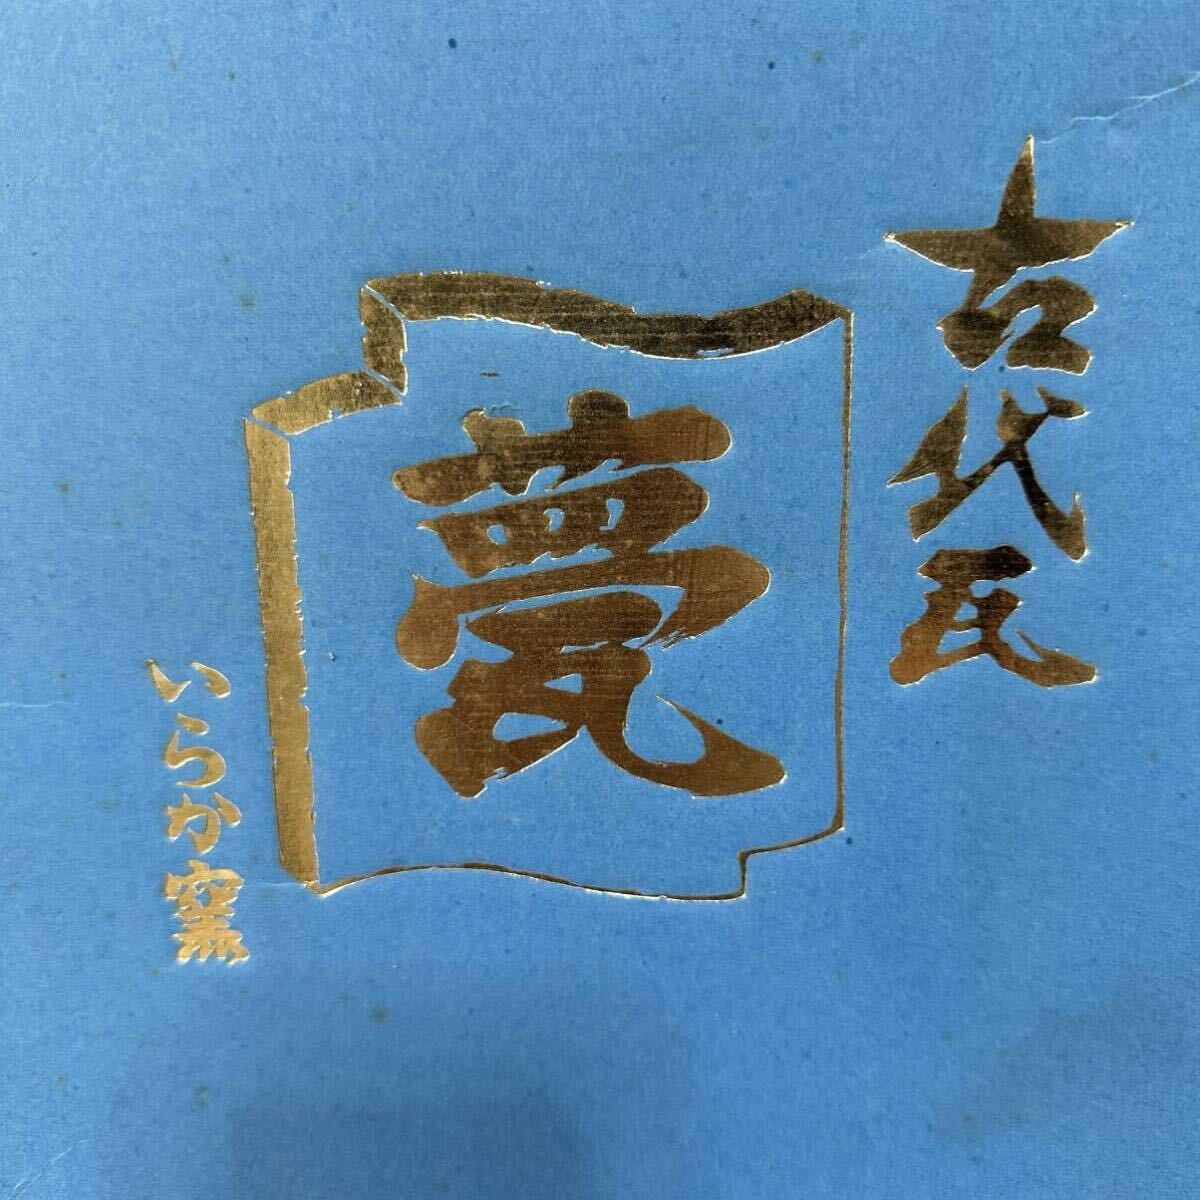 古代瓦
甍
いらか窯